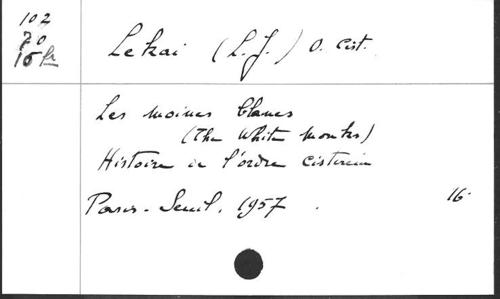 102
70
15 fr
Lekai (L. J.) O. Cist.
Les moines blancs
(The White Monks)
Histoire de l'ordre cistercien
Paris - Seuil, 1957 . 16°